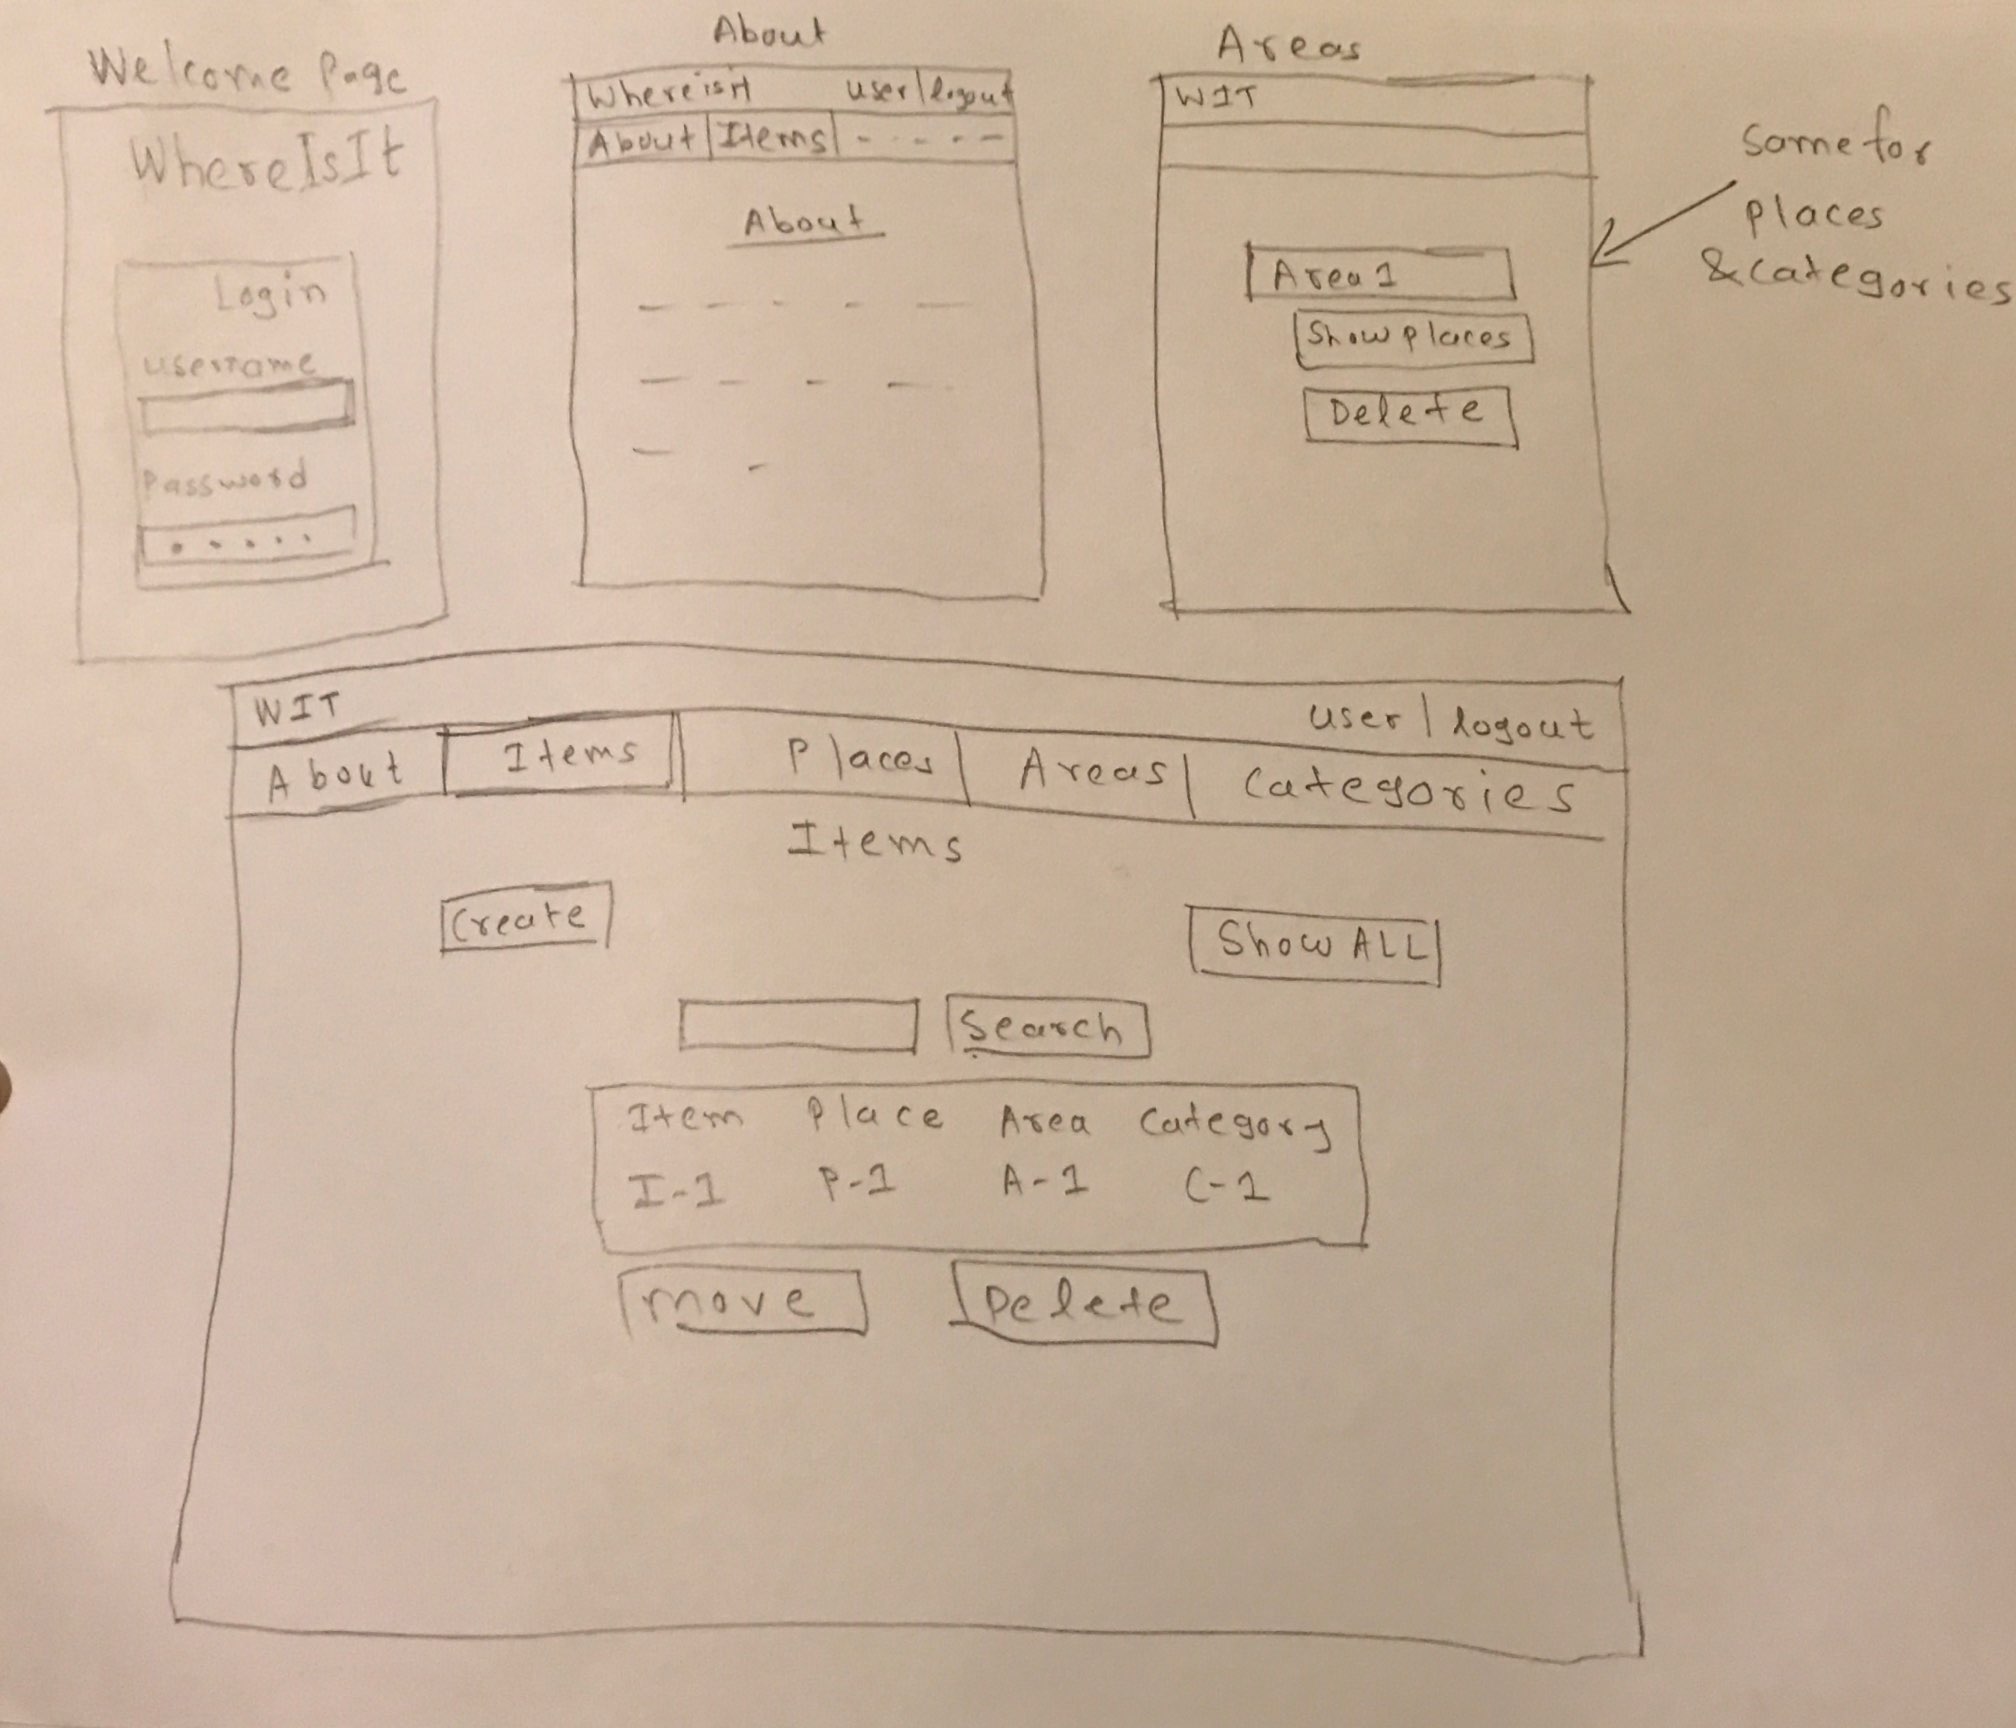 Welcome Page
WhereIsIt
Login
username
Password
About
Whereisit user|logout
About Items
About
Areas
WIT
Area 1
Show places
Delete
same for
places
& categories
WIT user | logout
About Items Places Areas Categories
Items
Create Show ALL
Search
Item Place Area Category
I-1 P-1 A-1 C-1
move Delete